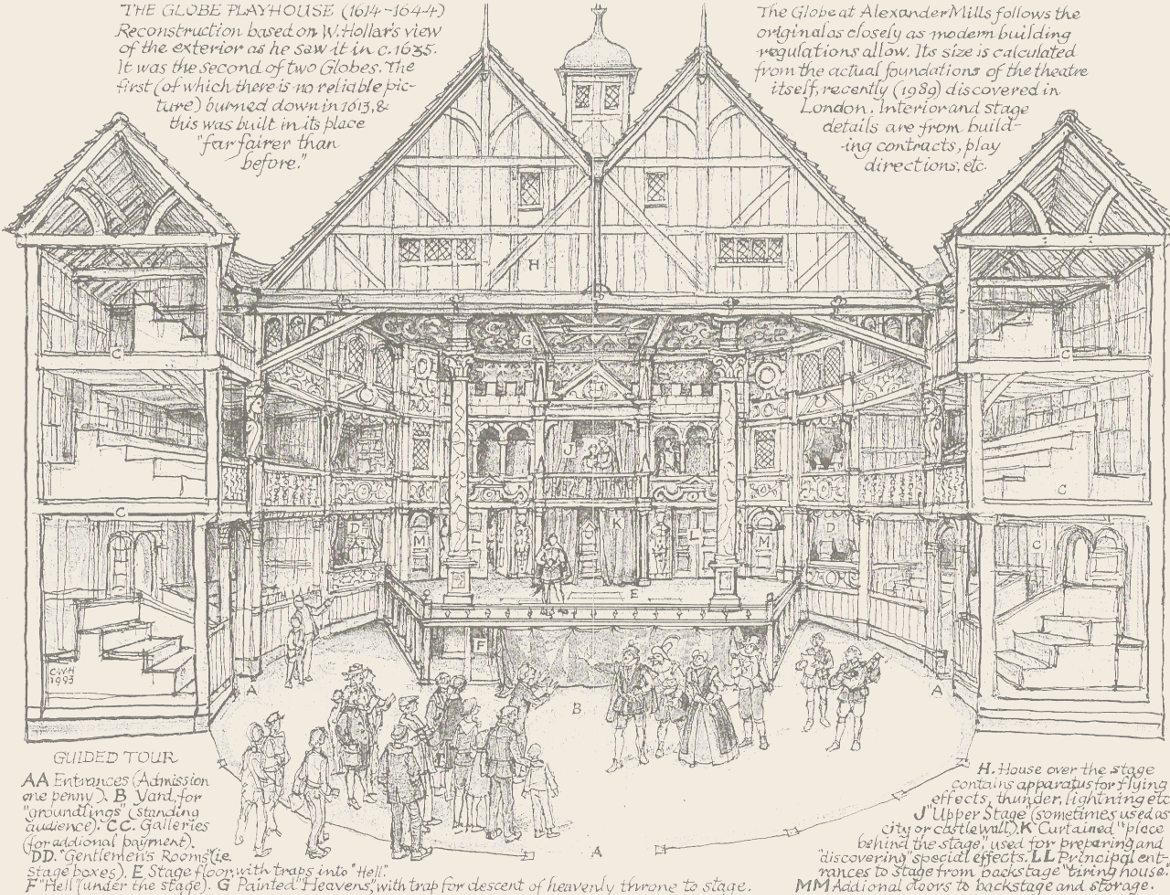 THE GLOBE PLAYHOUSE (1614-1644)
Reconstruction based on W. Hollar's view
of the exterior as he saw it in c. 1635.
It was the second of two Globes. The
first (of which there is no reliable pic-
ture) burned down in 1613, &
this was built in its place
"far fairer than
before."
The Globe at Alexander Mills follows the
original as closely as modern building
regulations allow. Its size is calculated
from the actual foundations of the theatre
itself, recently (1989) discovered in
London. Interior and stage
details are from build-
-ing contracts, play
directions, etc.
H
G
C
C
J
C
C
C
D
M
L
K
L
M
D
C
E
F
CWH
1993
A
B
A
A
GUIDED TOUR
AA Entrances (Admission
one penny). B Yard, for
"groundlings" (standing
audience). CC. Galleries
(for addional payment).
DD. "Gentlemen's Rooms" (ie.
stage boxes). E Stage floor, with traps into "Hell".
F "Hell" (under the stage). G Painted "Heavens", with trap for descent of heavenly throne to stage.
H. House over the stage
contains apparatus for flying
effects, thunder, lightning etc
J "Upper Stage" (sometimes used as
city or castle wall). K Curtained "place
behind the stage," used for preparing and
"discovering" special effects. LL Principal ent-
rances to stage from backstage "tiring house"
MM Addional doors to backstage and storage.